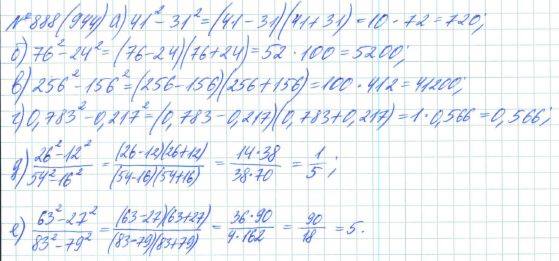 № 888 (944) а) 41² - 31² = (41 - 31)(41 + 31) = 10 · 72 = 720;
б) 76² - 24² = (76 - 24)(76 + 24) = 52 · 100 = 5200;
в) 256² - 156² = (256 - 156)(256 + 156) = 100 · 412 = 41200;
г) 0,783² - 0,217² = (0,783 - 0,217)(0,783 + 0,217) = 1 · 0,566 = 0,566;
д) (26² - 12²)/(54² - 16²) = ((26 - 12)(26 + 12))/((54 - 16)(54 + 16)) = (14 · 38)/(38 · 70) = 1/5;
е) (63² - 27²)/(83² - 79²) = ((63 - 27)(63 + 27))/((83 - 79)(83 + 79)) = (36 · 90)/(4 · 162) = 90/18 = 5.